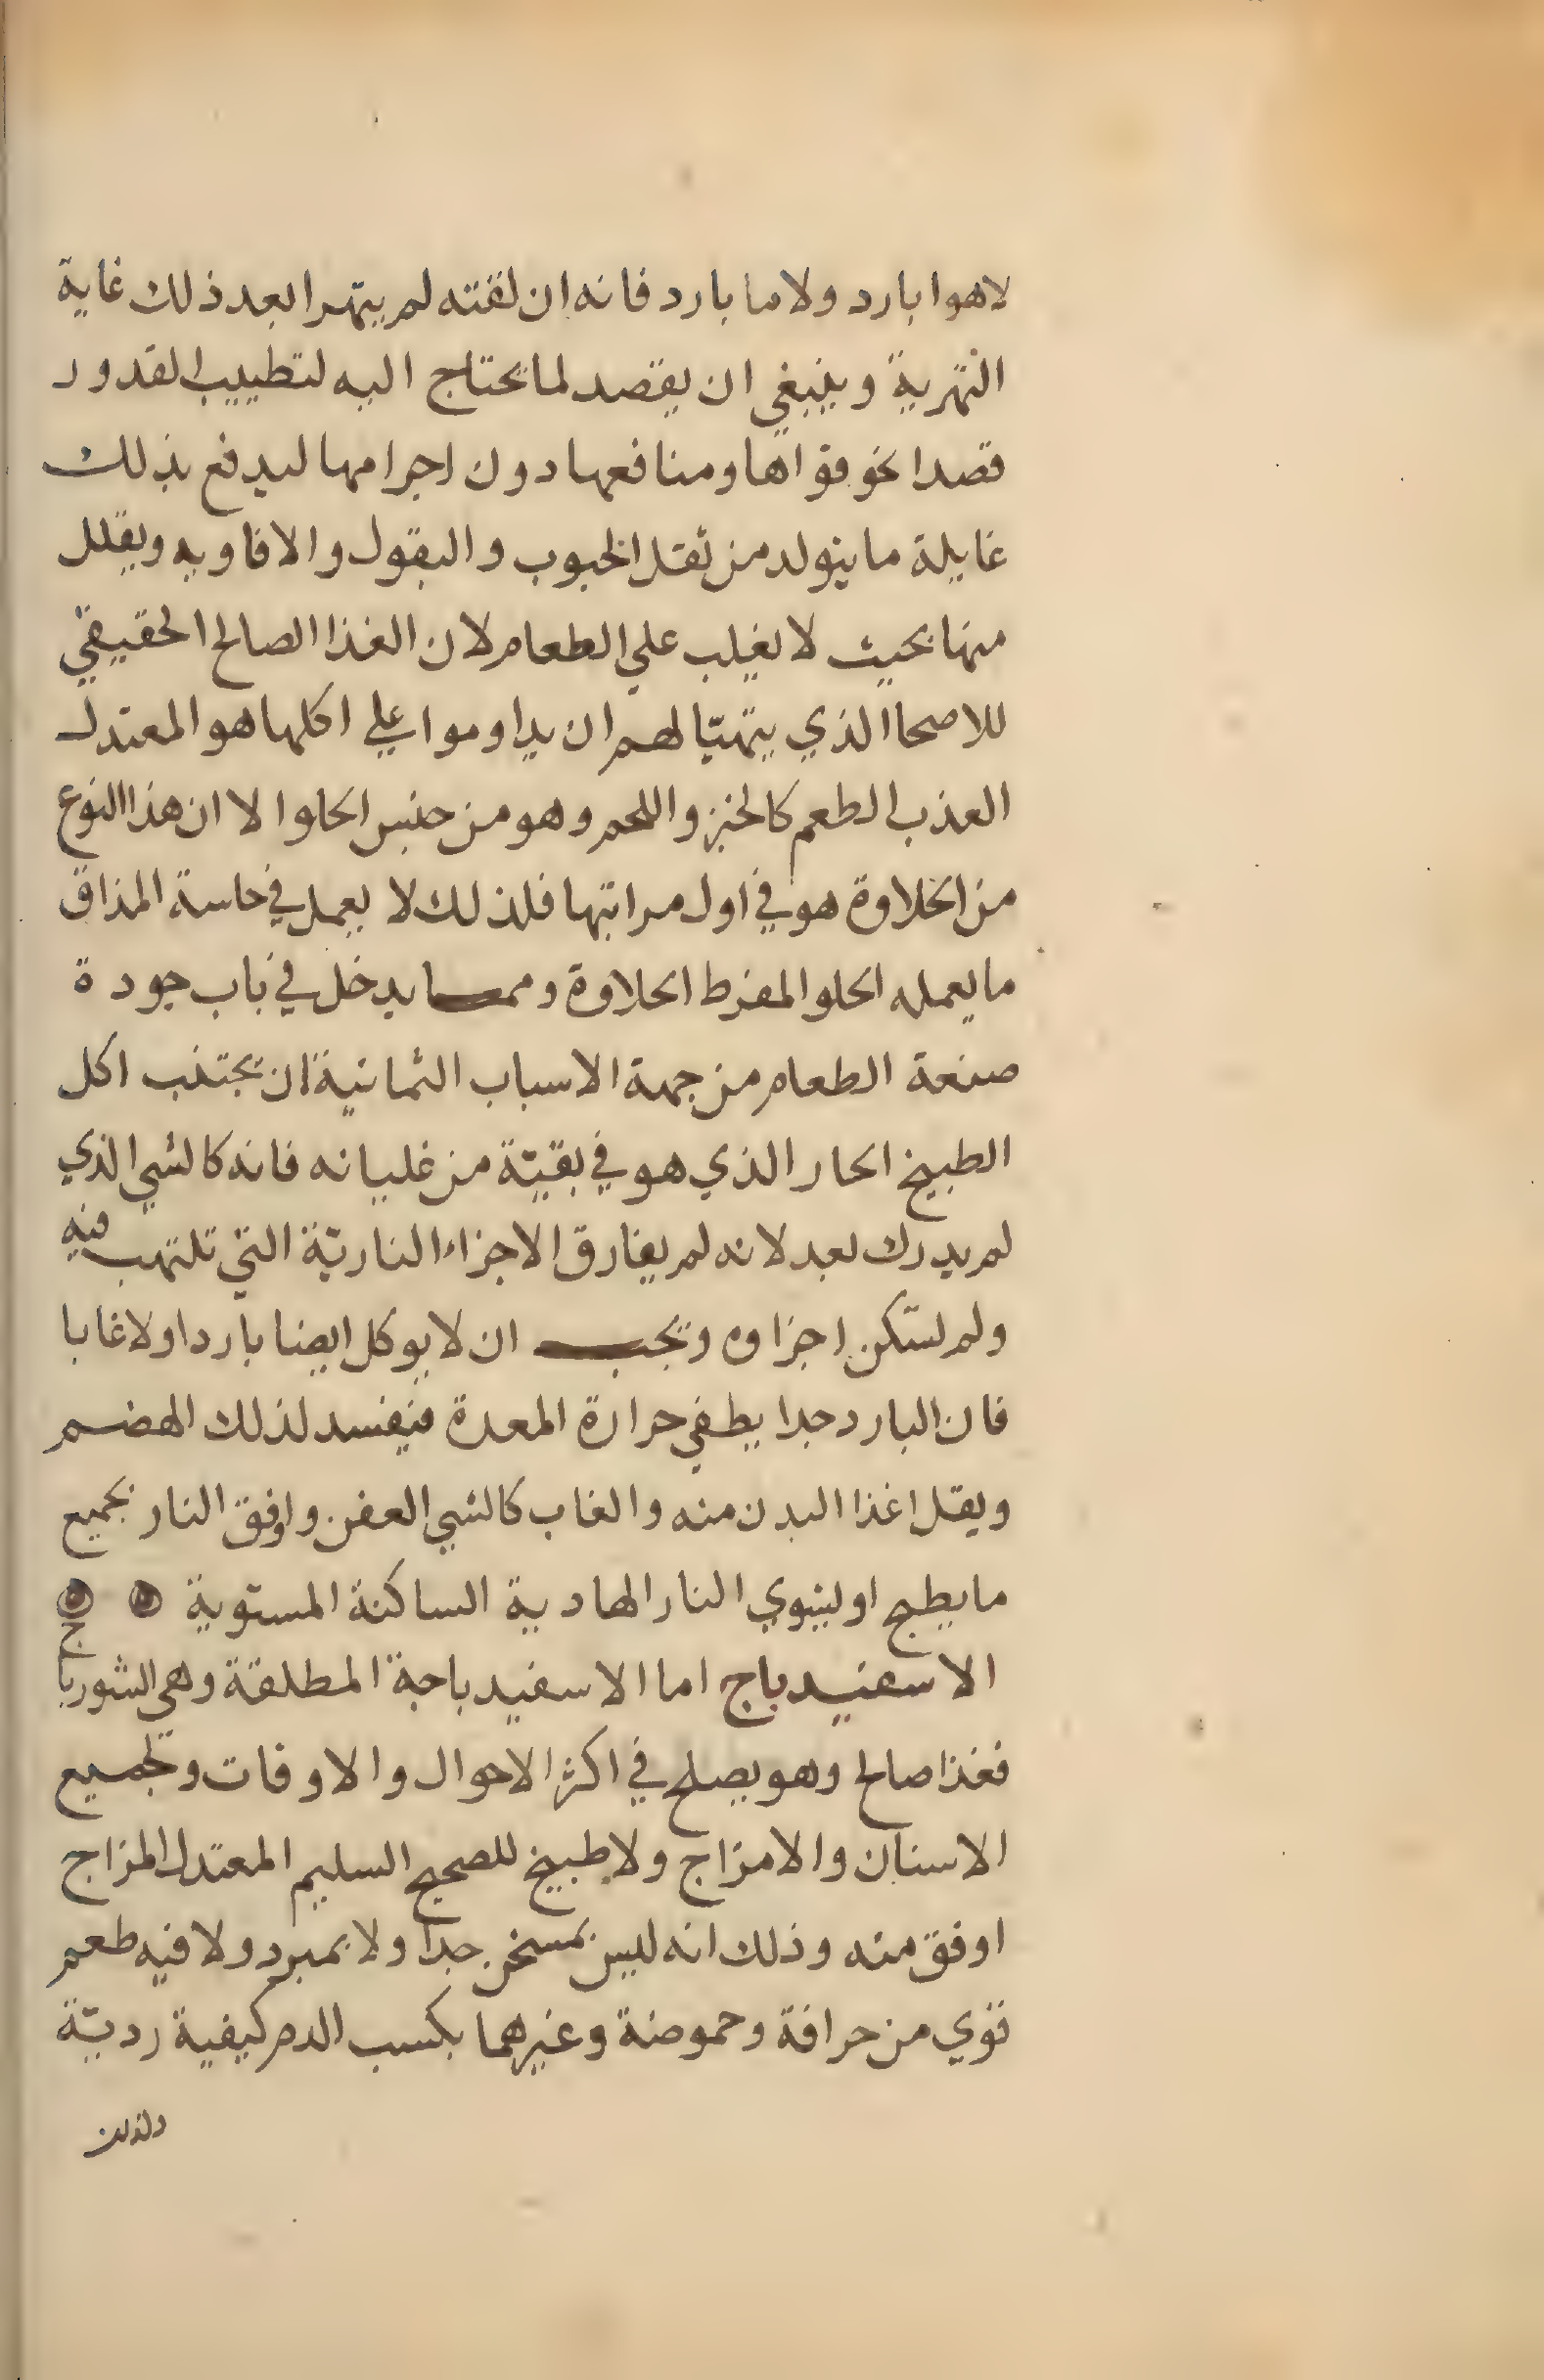 لاهوا بارد ولاما بارد فانه ان لفته لم يتهرا بعد ذلك غاية
التهرية وينبغي ان يقصد لما يحتاج اليه لتطييب القدور
قصدا نحو قواها ومنافعها دون اجرامها ليدفع بذلك
غايلة ما يتولد من ثقل الحبوب والبقول والافاويه ويقلل
منها بحيث لا يغلب علي الطعام لان الغذا الصالح الحقيقي
للاصحا الذي يتهيّا لهم ان يداوموا علي اكلها هو المعتدل
العذب الطعم كالخبز واللحم وهو من جنس الحلو الا ان هذا النوع
من الحلاوة هو في اول مراتبها فلذلك لا يعمل في حاسة المذاق
ما يعمله الحلو المفرط الحلاوة ومما يدخل في باب جودة
صنعة الطعام من جهة الاسباب الثمانية ان يجتنب اكل
الطبيخ الحار الذي هو في بقيّة من غليانه فانه كالشي الذي
لم يدرك بعد لانه لم يفارق الاجزاء الناريّة التي تلتهب فيه
ولم تسكن اجزاوه ويجب ان لا يوكل ايضا باردا ولا غابا
فان البارد جدا يطفي حرارة المعدة فيفسد لذلك الهضم
ويقل اغذا البدن منه والغاب كالشي العفن واوفق النار بجميع
ما يطبخ او يشوي النار الهادية الساكنة المستوية
الاسفيدباج اما الاسفيدباجة المطلقة وهي الشورباج
فغذا صالح وهو يصلح في اكثر الاحوال والاوقات ولجميع
الاسنان والامزاج ولا طبيخ للصحيح السليم المعتدل المزاج
اوفق منه وذلك انه ليس بمسخن جدا ولا بمبرد ولا فيه طعم
قوي من حرافة وحموضة وغيرهما يكسب الدم كيفية رديّة
ولذلك